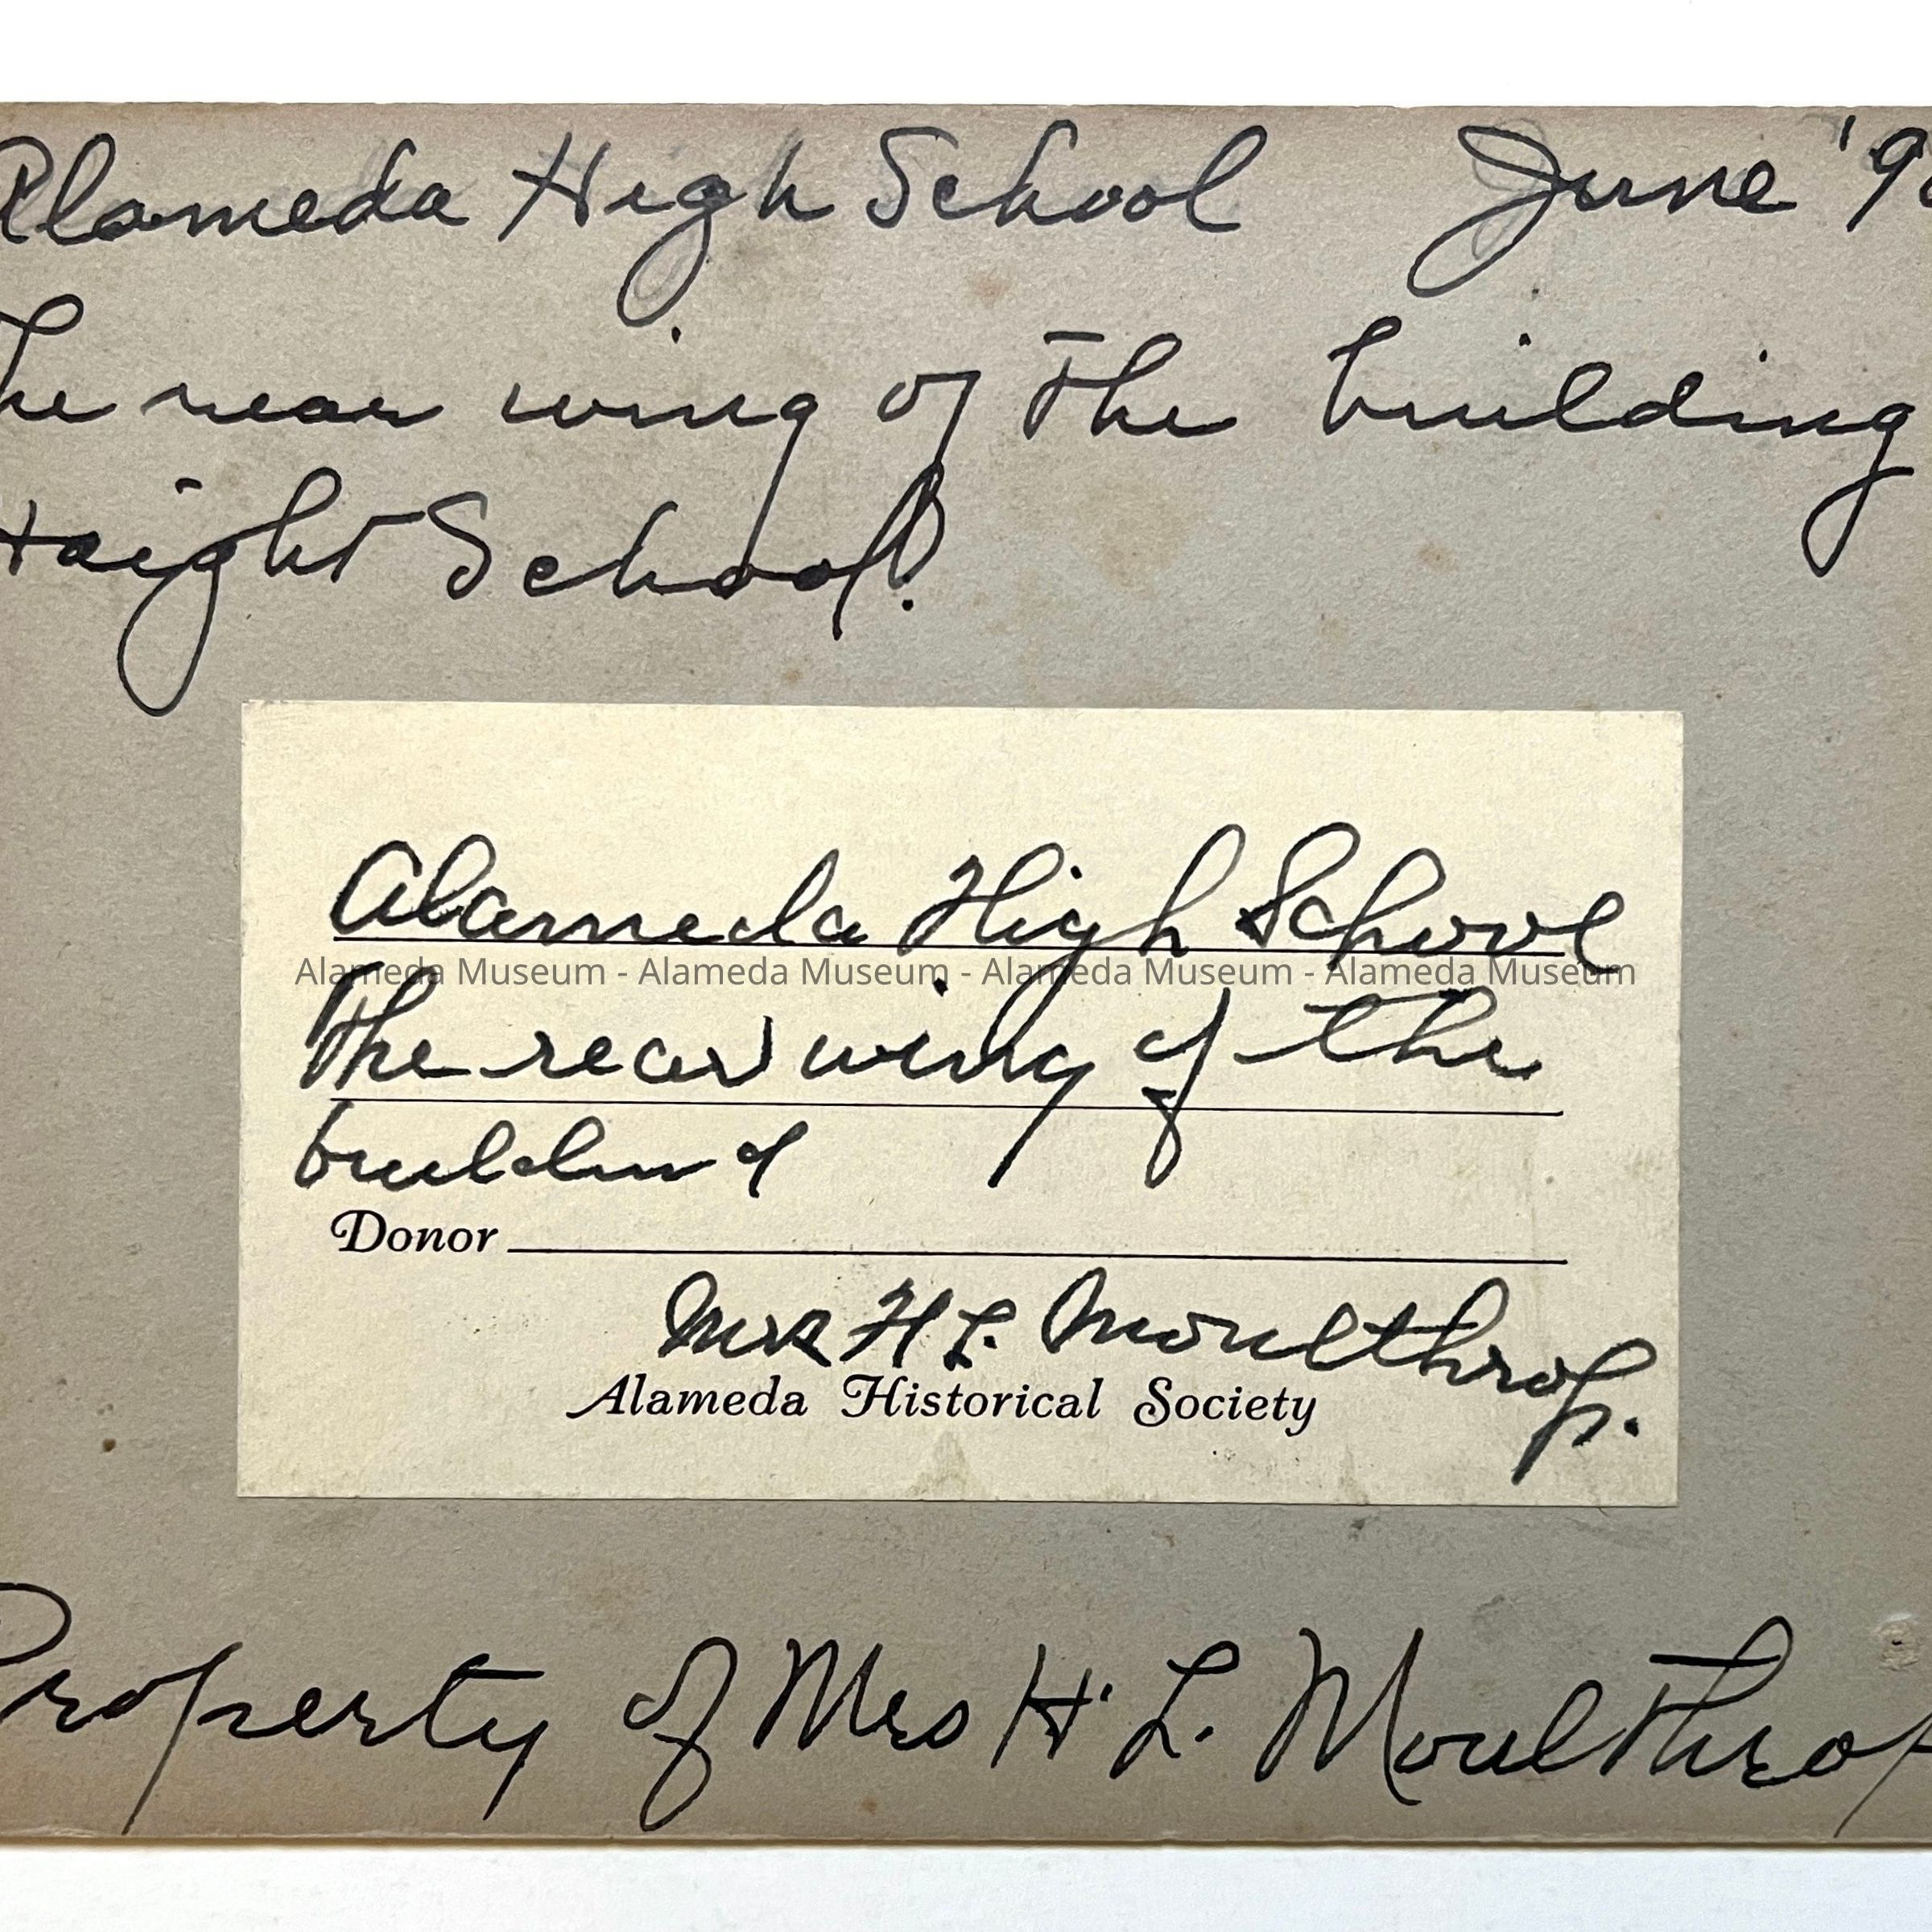 Alameda High School June '9
The rear wing of the building
Haight School?
Alameda High School
Alameda Museum - Alameda Museum - Alameda Museum - Alameda Museum
The rear wing of the
building
Donor
Mrs H L. Moulthrop.
Alameda Historical Society
Property of Mrs H. L. Moulthrop